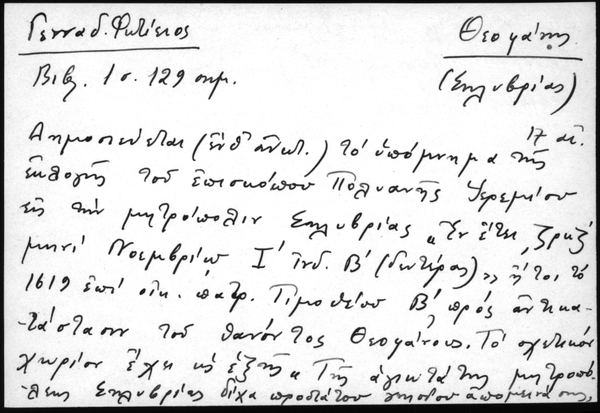 Γενναδ. Φιτίειος
Θεοφάνης
Βιβλ. 1 σ. 129 σημ.
(Σηλυβρίας)
17 αἰ.
Δημοσιεύεται (ἔνθ' ἀνωτ.) τό ὑπόμνημα τῆς
ἐκλογῆς τοῦ ἐπισκόπου Πολυανῆς Ἱερεμίου
εἰς τήν μητρόπολιν Σηλυβρίας "ἐν ἔτει ͵ζρκζ
μηνί Νοεμβρίῳ Ι' ἰνδ. Β' (δευτέρας)" ἤτοι τό
1619 ἐπί οἰκ. πατρ. Τιμοθέου Β', πρός ἀντικα-
-τάστασιν τοῦ θανόντος Θεοφάνους. Τό σχετικόν
χωρίον ἔχει ὡς ἑξῆς "Τῆς ἁγιωτάτης μητροπό-
-λεως Σηλυβρίας δίχα προστάτου γνησίου ἀπομεινάσης,